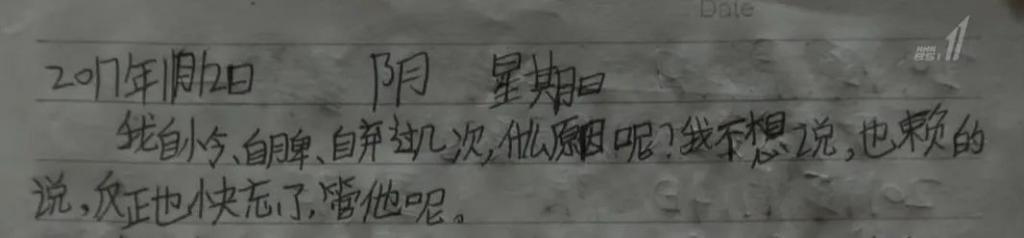 Date
NHK BS1
2017年11月12日 阴 星期日
我自怜、自脾、自弃过几次,什么原因呢?我不想说,也赖的
说,反正也快忘了,管他呢。